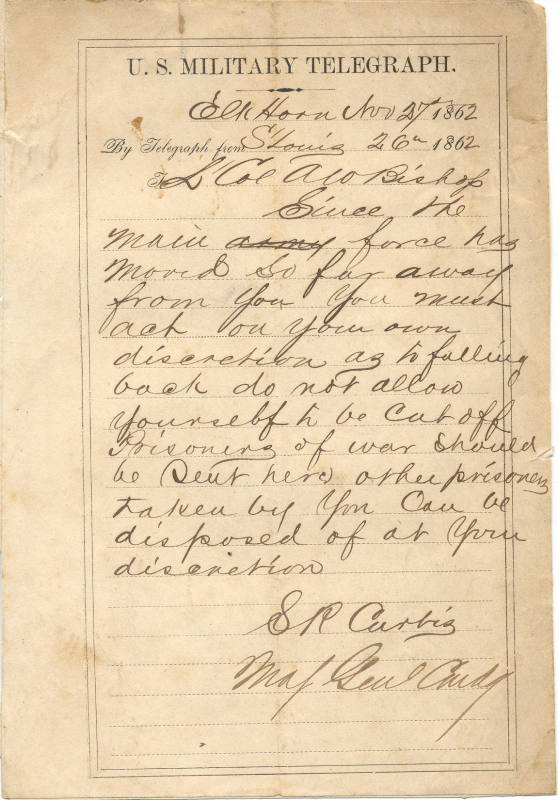 U. S. MILITARY TELEGRAPH.
Elk Horn Nov 27th 1862
By Telegraph from St Louis 26th 1862
To L Col A W Bishop
Since the
main army force has
moved so far away
from you you must
act on your own
discretion as to falling
back do not allow
yourself to be cut off
Prisoners of war should
be sent here other prisoners
taken by you can be
disposed of at your
discretion
S R Curtis
Maj Genl Comdg